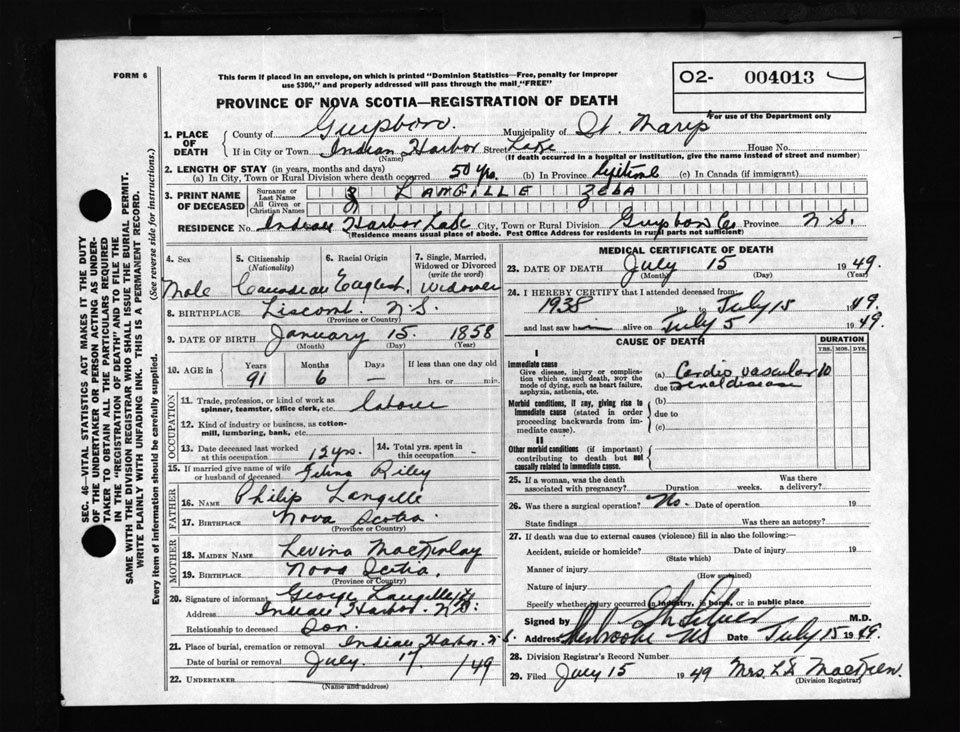 FORM 6
This form if placed in an envelope, on which is printed "Dominion Statistics—Free, penalty for improper
use $300," and properly addressed will pass through the mail "FREE"
O2- 004013
For use of the Department only
PROVINCE OF NOVA SCOTIA—REGISTRATION OF DEATH
1. PLACE OF DEATH
County of Guysboro. Municipality of St. Marys
If in City or Town Indian Harbor Lake Street House No.
(Name) (If death occurred in a hospital or institution, give the name instead of street and number)
2. LENGTH OF STAY (in years, months and days)
(a) In City, Town or Rural Division where death occurred 50 yrs. (b) In Province lifetime (c) In Canada (if immigrant)
3. PRINT NAME OF DECEASED
Surname or Last Name LANGILLE ZEBA
All Given or Christian Names
RESIDENCE No. Indian Harbor Lake City, Town or Rural Division Guysboro Co Province N.S.
(Residence means usual place of abode. Post Office Address for residents in rural parts not sufficient)
4. Sex Male
5. Citizenship (Nationality) Canadian
6. Racial Origin English
7. Single, Married, Widowed or Divorced (write the word) Widower
8. BIRTHPLACE Liscomb N.S.
(Province or Country)
9. DATE OF BIRTH January 15 1858
(Month) (Day) (Year)
10. AGE in Years 91 Months 6 Days — If less than one day old hrs. or min.
OCCUPATION
11. Trade, profession, or kind of work as spinner, teamster, office clerk, etc. laborer
12. Kind of industry or business, as cotten-mill, lumbering, bank, etc.
13. Date deceased last worked at this occupation 12 yrs.
14. Total yrs. spent in this occupation -
15. If married give name of wife or husband of deceased Riley
FATHER
16. NAME Philip Langille
17. BIRTHPLACE Nova Scotia.
(Province or Country)
MOTHER
18. MAIDEN NAME Levina MacKinlay
19. BIRTHPLACE Nova Scotia.
(Province or Country)
20. Signature of informant George Langille
Address Indian Harbor. N.S.
Relationship to deceased Son.
21. Place of burial, cremation or removal Indian Harbor N.S.
Date of burial or removal July 17 /49
22. UNDERTAKER
(Name and address)
MEDICAL CERTIFICATE OF DEATH
23. DATE OF DEATH July 15 1949.
(Month) (Day) (Year)
24. I HEREBY CERTIFY that I attended deceased from:
1938 19 to July 15 1949.
and last saw him alive on July 5 1949
CAUSE OF DEATH
DURATION
YRS. MOS. DYS.
I
Immediate cause
Give disease, injury or complication which caused death, NOT the mode of dying, such as heart failure, asphyxia, asthenia, etc.
(a) Cardio vascular 10
due to renal disease
Morbid conditions, if any, giving rise to immediate cause (stated in order proceeding backwards from immediate cause).
(b)
due to
(c)
II
Other morbid conditions (if important) contributing to death but not causally related to immediate cause.
25. If a woman, was the death associated with pregnancy? Duration weeks. Was there a delivery?
26. Was there a surgical operation? No. Date of operation 19
State findings Was there an autopsy?
27. If death was due to external causes (violence) fill in also the following:—
Accident, suicide or homicide? Date of injury 19
(State which)
Manner of injury
(How sustained)
Nature of injury
Specify whether injury occurred in industry, in home, or in public place
Signed by M.D.
Address Sherbrooke NS Date July 15 1949.
28. Division Registrar's Record Number
29. Filed July 15 1949 Mrs.
(Division Registrar)
SEC. 46—VITAL STATISTICS ACT MAKES IT THE DUTY
OF THE UNDERTAKER OR PERSON ACTING AS UNDER-
TAKER TO OBTAIN ALL THE PARTICULARS REQUIRED
IN THE "REGISTRATION OF DEATH" AND TO FILE THE
SAME WITH THE DIVISION REGISTRAR WHO SHALL ISSUE THE BURIAL PERMIT.
WRITE PLAINLY WITH UNFADING INK. THIS IS A PERMANENT RECORD.
Every item of information should be carefully supplied. (See reverse side for instructions.)